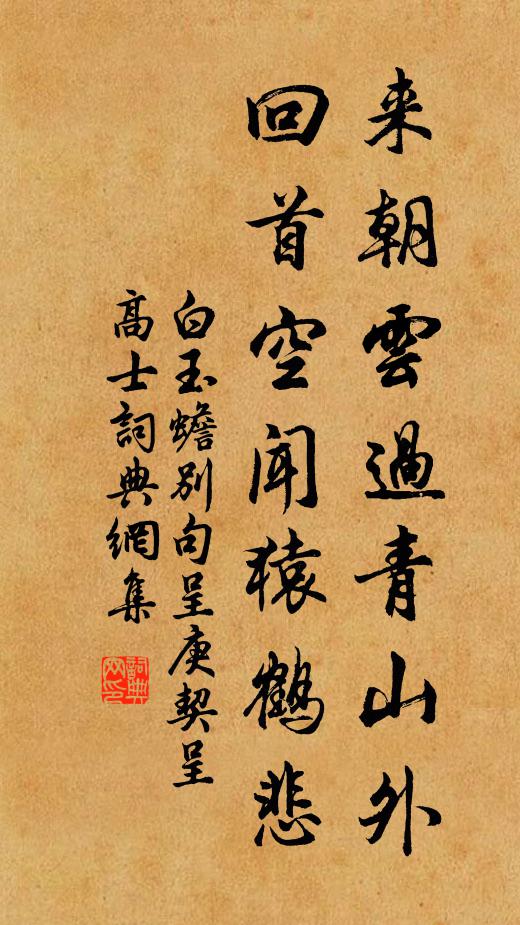 来朝雲過青山外
回首空闻猿鶴悲
白玉蟾别句呈庚契呈
高士詞典網集
詞典网印